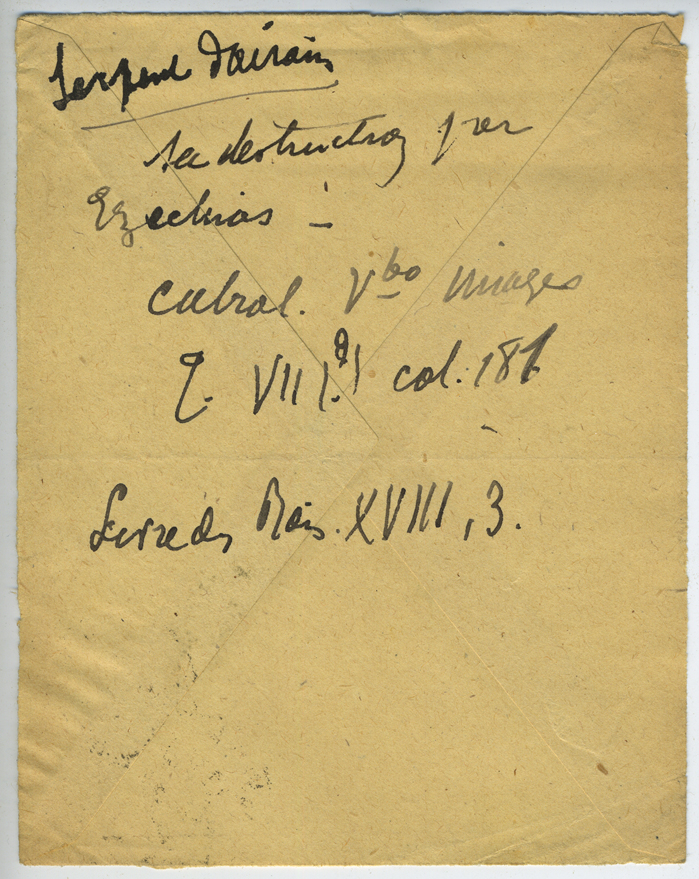 Serpent d'airain
sa destruction par
Ezechias :
Cabrol. Vbo Images
T. VII I. col. 181
Livre des Rois. XVIII, 3.